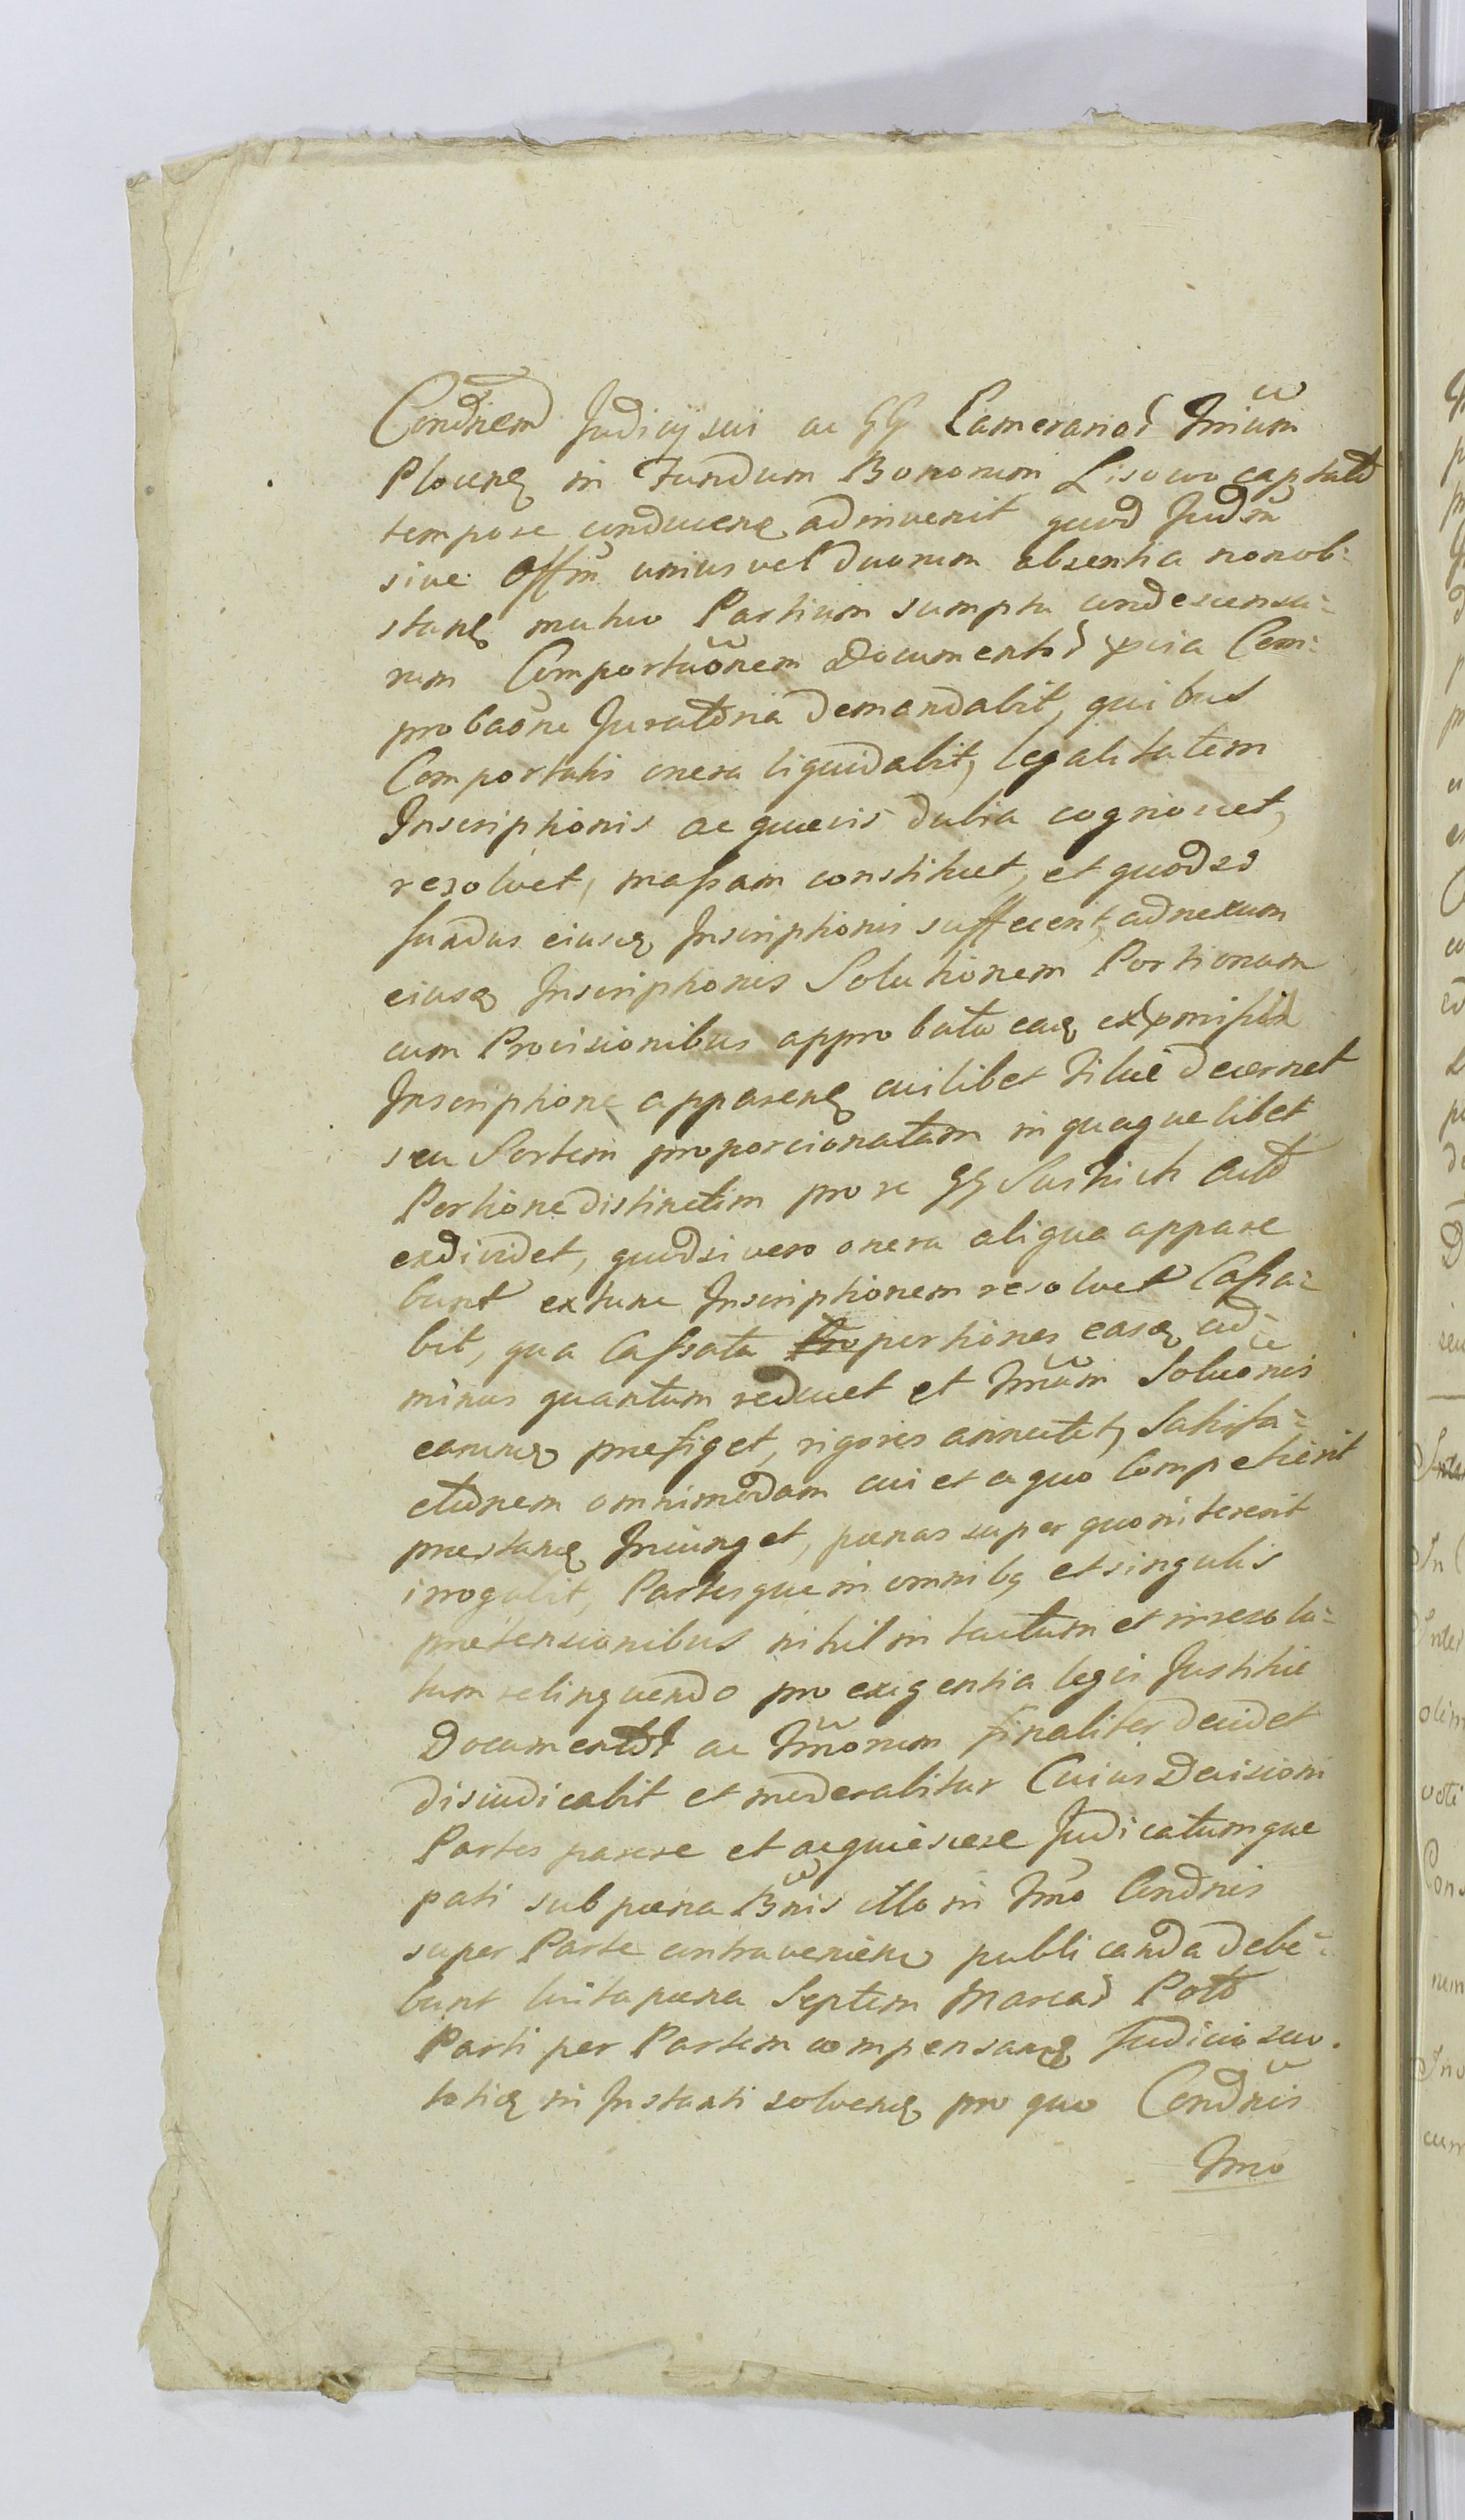 Condnem Judicy sui ac GG Camerariod Trium
Plocens in Fundum Bonorum Lisowo captato
tempore conducens adinvenit quod Judm
sive Offm unius vel duorum absentia nonob-
stans mutuo Partium sumptu condescensu-
rum Comportaonem Documentod pvia Com-
probaone Juratoria demandabit, quibus
Comportatis onera liquidabit, legalitatem
Inscriptionis ac quaevis dubia cognoscet,
resolvet, massam constituet, et quodsi
fundus eiusq Inscriptionis suffecerit, adnexum
eiusq Inscriptionis Solutionem Portionum
cum Provisionibus approbato eaq ex pmissis
Inscriptione apparens cuilibet tilue decernet
seu Sortem proporcionatam in quaque libet
Portione distinctim pro re GG Suskich Actod
exdividet, quodsi vero onera aliqua appare
bunt extunc Inscriptionem resolvet Cassa-
bit, qua Cassata portiones easq ad
minus quantum reducet et Tmum Soluonis
earumq praefiget, rigores annectet, Satisfa-
ctionem omnimodam cui et a quo Competierit
praestans Injunget, paenas super quo niterent
irrogabit, Partesque in omnibq et singulis
praetensionibus nihil in tactum et irresolu-
tum relinquendo pro exigentia legis Justitiae
Documentod ac Tmonum finaliter decidet
disiudicabit et moderabitur Cuius Decisioni
Partes parere et acquiescere Judicatumque
pati sub paena Bnis illo in Tmo Condnis
super Parte contraveniens publicanda debe-
bunt luita paena Septem Marcad Potd
Parti per Partem compensans Judicio suo
totiq in Instanti solvens pro quo Condnis
Tmo